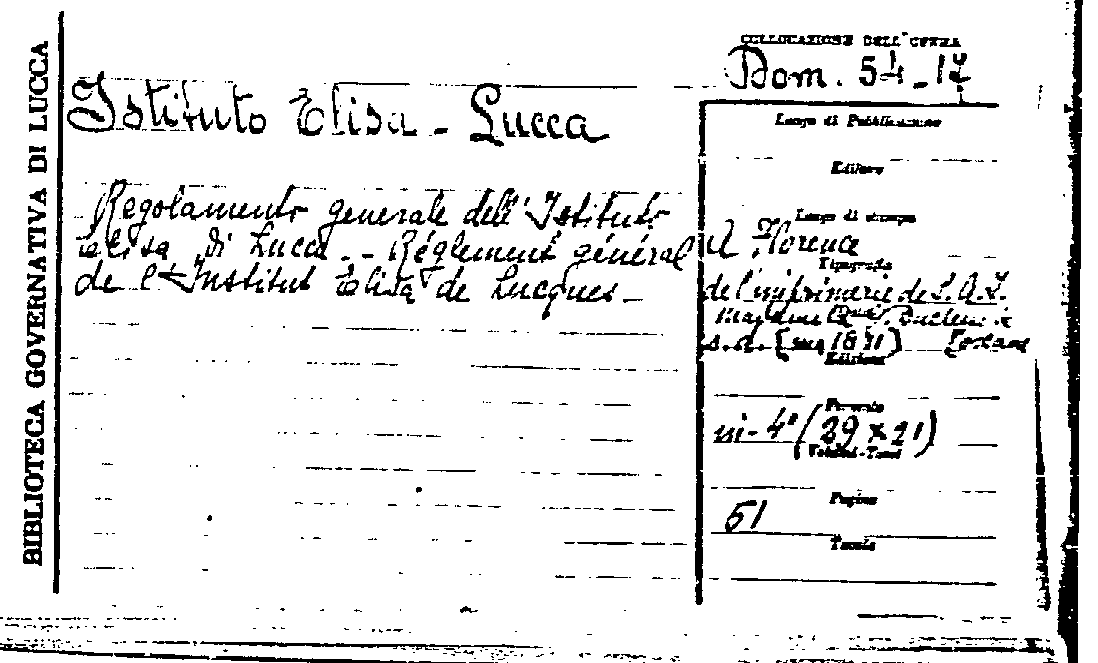 BIBLIOTECA GOVERNATIVA DI LUCCA
COLLOCAZIONE DELL'OPERA
Dom. 54-17
Istituto Elisa - Lucca
Luogo di Pubblicazione
Editore
Regolamento generale dell'Istituto
Elisa di Lucca. - Réglement général
de l'Institut Elisa de Lucques -
Luogo di stampa
A Florence
Tipografia
de l'imprimerie de S. A. I.
Madame la
s.d. Toscane
Edizione
Formato
in-4° (29 x 21)
Volumi-Tomi
Pagine
51
Tavole